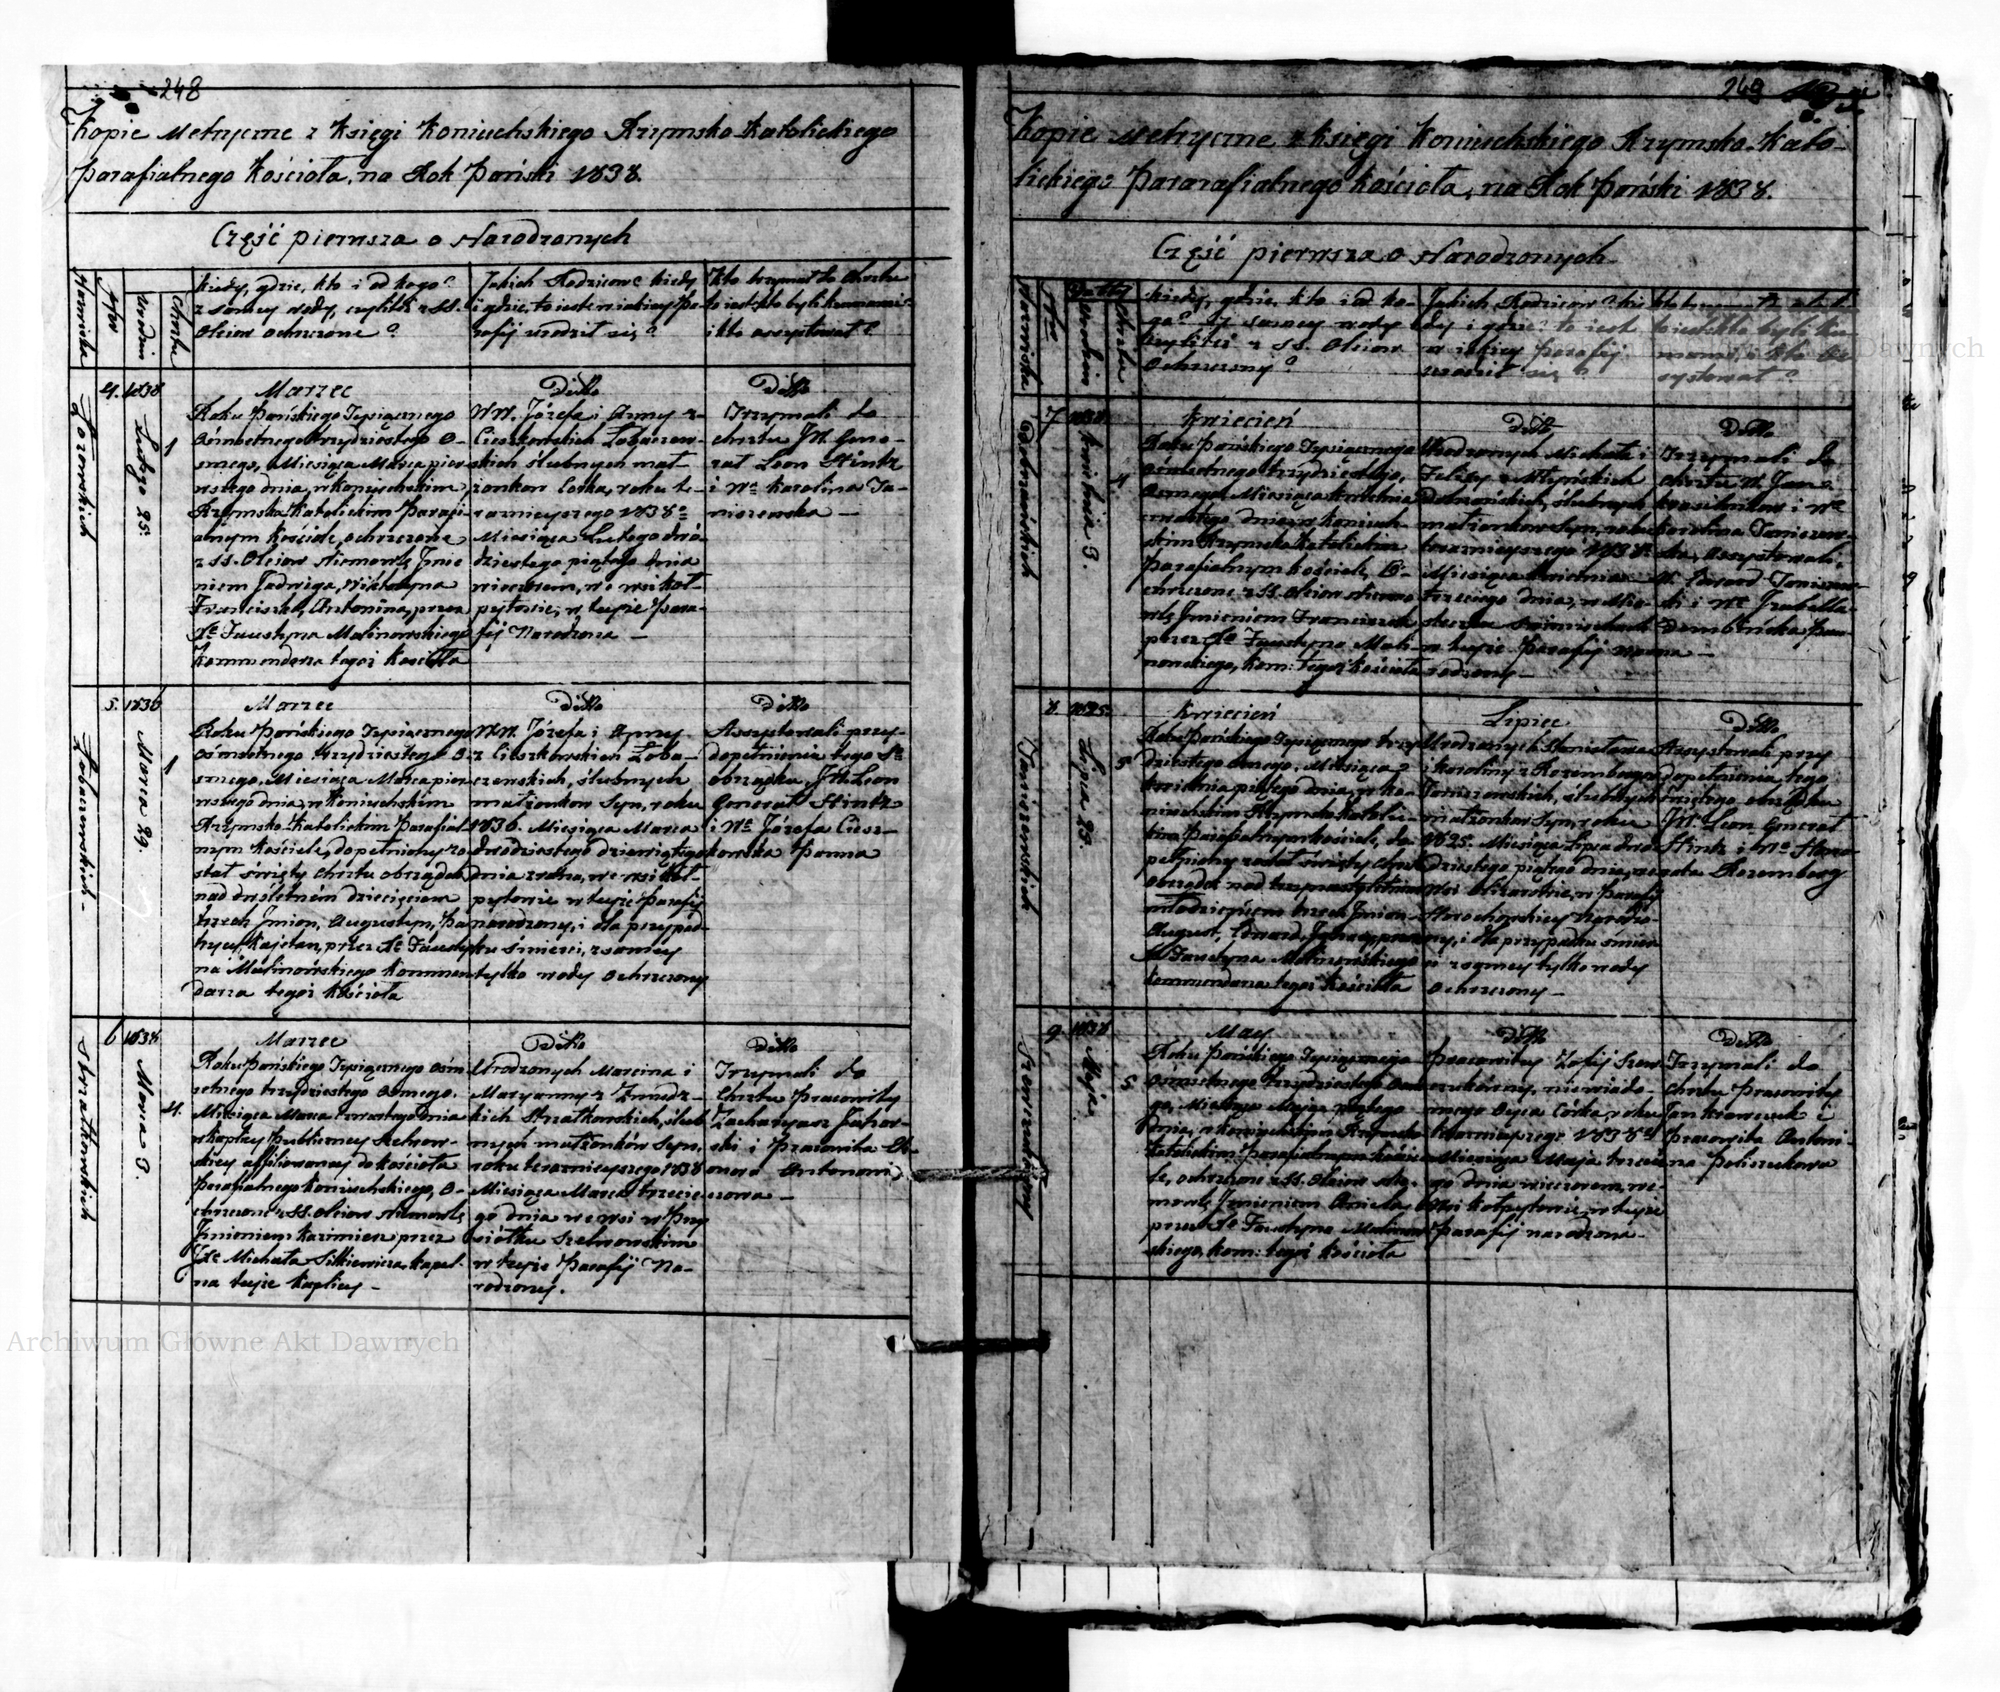 248
Kopie Metryczne z Księgi Koniuchskiego Rzymsko Katolickiego
Parafialnego Kościoła, na Rok Pański 1838.
Część pierwsza o Narodzonych
Nazwiska
Urodzin
Chrztu
Kiedy, gdzie, kto i od kogo?
z samey wody, czyliteż z SS.
Oleiow ochrzczone?
Jakich Rodzicow? kiedy
i gdzie, to iest w iakiey Pa-
rafij urodził się?
Kto trzymał do chrztu
to iest kto byli kumami
i kto assystował?
4.
1838
Lutego 25.
1
Marzec
Roku Pańskiego Tysiącznego
Osmsetnego trzydziestego O-
smego, Miesiąca Marca pier-
wszego dnia, w Koniuchskim
Rzymsko Katolickim Parafi-
alnym Kościele, ochrzczone
z SS. Oleiow Niemowlę Jmie-
niem Jadwiga, Wiktoryna
Franciszka, Antonina, przez
Xa Faustyna Malinowskiego
Kommendarza tegoż Kościoła
Ditto
WW. Józefa i Anny z
Cieszkowskich
skich ślubnych mał-
żonkow Corka, roku te-
raznieyszego 1838o
Miesiąca Lutego dwó-
dziestego piątego dnia
wieczorem, we wsi Koł-
pytowie, w teyże Para-
fij Narodzona —
Ditto
Trzymali do
chrztu JW. Gene-
rał Leon Stintz
i Wa Karolina Ja-
niszewska —
5.
1836
Marca 29.
1
Marzec
Roku Pańskiego Tysiącznego
Osmsetnego trzydziestego O-
smego, Miesiąca Marca pier-
wszego dnia, w Koniuchskim
Rzymsko-Katolickim Parafial-
nym Kościele, dopełniony zo-
stał święty chrztu obrządek
nad dwóletnim dziecięciem
trzech Jmion, Augustyn, Pa-
trycy, Kajetan, przez Xa Fausty-
na Malinowskiego Kommen-
darza tegoż Kościoła
Ditto
WW. Józefa i Anny
z Cieszkowskich Łoba-
czewskich, ślubnych
małżonkow Syn, roku
1836. Miesiąca Marca
dwódziestego dziewiątego
dnia zrana, we wsi Koł-
pytowie w teyże Parafij
narodzony, i dla przypad-
ku śmierci, z samey
tylko wody ochrzczony
Ditto
Assystowali przy
dopełnieniu tego So
obrządku, JW. Leon
Generał Stintz
i Wa Józefa Ciesz-
kowska Panna
6
1838
Marca 3.
4.
Marzec
Roku Pańskiego Tysiącznego Osm
setnego trzydziestego Osmego,
Miesiąca Marca czwartego dnia
w Kaplicy Publiczney Szelwow-
skiey affiliowaney do Kościoła
Parafialnego Koniuchskiego, O-
chrzczone z SS. Oleiow Niemowlę
Jmieniem Kazimierz przez
Xa Michała Sitkiewicza, Kapel-
na teyże Kaplicy —
Ditto
Urodzonych Marcina i
Maryanny z Zmudz-
kich Strzałkowskich, ślub-
nych małżonków Syn,
roku teraznieyszego 1838
Miesiąca Marca trzecie-
go dnia we wsi w Przy
siółku Szelwowskim
w teyże Parafij Na-
rodzony.
Ditto
Trzymali do
Chrztu Pracowity
Zacharyasz
ski i Pracowita
249
Kopie Metryczne z Księgi Koniuchskiego Rzymsko-Kato-
lickiego Pararafialnego Kościoła, na Rok Pański 1838.
Część pierwsza o Narodzonych
Nazwiska
Urodzin
Chrztu
Kiedy, gdzie, kto i od ko-
go? z samey wody
czyliteż z SS. Oleiow
Ochrzczony?
Jakich Rodzicow? kie
dy i gdzie, to iest
w iakiey Parafij
urodził się?
to iest kto byli ku
mami, i kto As
systował?
7
1838
Kwietnia 3.
4
Kwiecień
Roku Pańskiego Tysiącznego
Osmsetnego trzydziestego,
Osmego, Miesiąca Kwietnia
czwartego dnia, w Koniuch-
skim Rzymsko Katolickim
Parafialnym Kościele, O-
chrzczone z SS. Oleiow niemo-
wlę Jmieniem Franciszek
przez Xa Faustyna Mali-
nowskiego, Kom: tegoż Kościoła
Ditto
Urodzonych Michała i
małżonkow Syn, roku
teraznieyszego 1838o
Miesiąca Kwietnia
trzeciego dnia, w Mia-
steczku
w teyże Parafij na-
rodzony —
Ditto
Trzymali do
chrztu W. Jan
i Wa
Karolina Janiszew-
ska, Assystowali
W. Edward Janiszew-
ski i Wa Izabella
Dembińska Pan-
na —
8.
1825.
Lipca 25.
5
Kwiecień
Roku Pańskiego Tysiącznego trzy
dziestego Osmego, Miesiąca
Kwietnia piątego dnia, w Ko-
niuchskim Rzymsko Katolic-
kim Parafialnym Kościele, do-
pełniony został święty chrztu
Obrządek nad trzynastoletnim
młodzieńcem trzech Jmion
August, Edward, przez
Xa Faustyna Malinowskiego
Kommendarza tegoż Kościoła
Lipiec
Urodzonych Stanisława
i Karoliny z Rozembergow
Janiszewskich, ślubnych
małżonkow Syn, roku
1825. Miesiąca Lipca dwo-
dziestego piątego dnia, we
wsi w Parafij
ny, i dla przypadku śmier
ci z samey tylko wody
ochrzczony —
Ditto
Assystowali przy
dopełnieniu tego
świętego obrządku
JW. Leon Generał
Stintz i Wa
Rozemberg
9
1838
Maja
5.
May
Roku Pańskiego Tysiącznego
Osmsetnego trzydziestego Osme
go, Miesiąca Maja piątego
dnia, w Koniuchskim Rzymsko
Katolickim Parafialnym Koście-
le, ochrzczone z SS. Oleiow nie-
mowlę Jmieniem Aniela
przez Xa Faustyna Malinow
skiego, Kom: tegoż Kościoła
Ditto
Pracowitey Zofij Szew
czukówny, niewiado-
mego Oyca Córka, roku
teraznieyszego 1838o
Miesiąca Maja trzecie
go dnia wieczorem, we
wsi Kołpytowie, w teyże
Parafij narodzona —
Ditto
Trzymali do
chrztu Pracowity
Jan Krawczuk i
Pracowita Antoni-
na Poliszukowa
Archiwum Główne Akt Dawnych